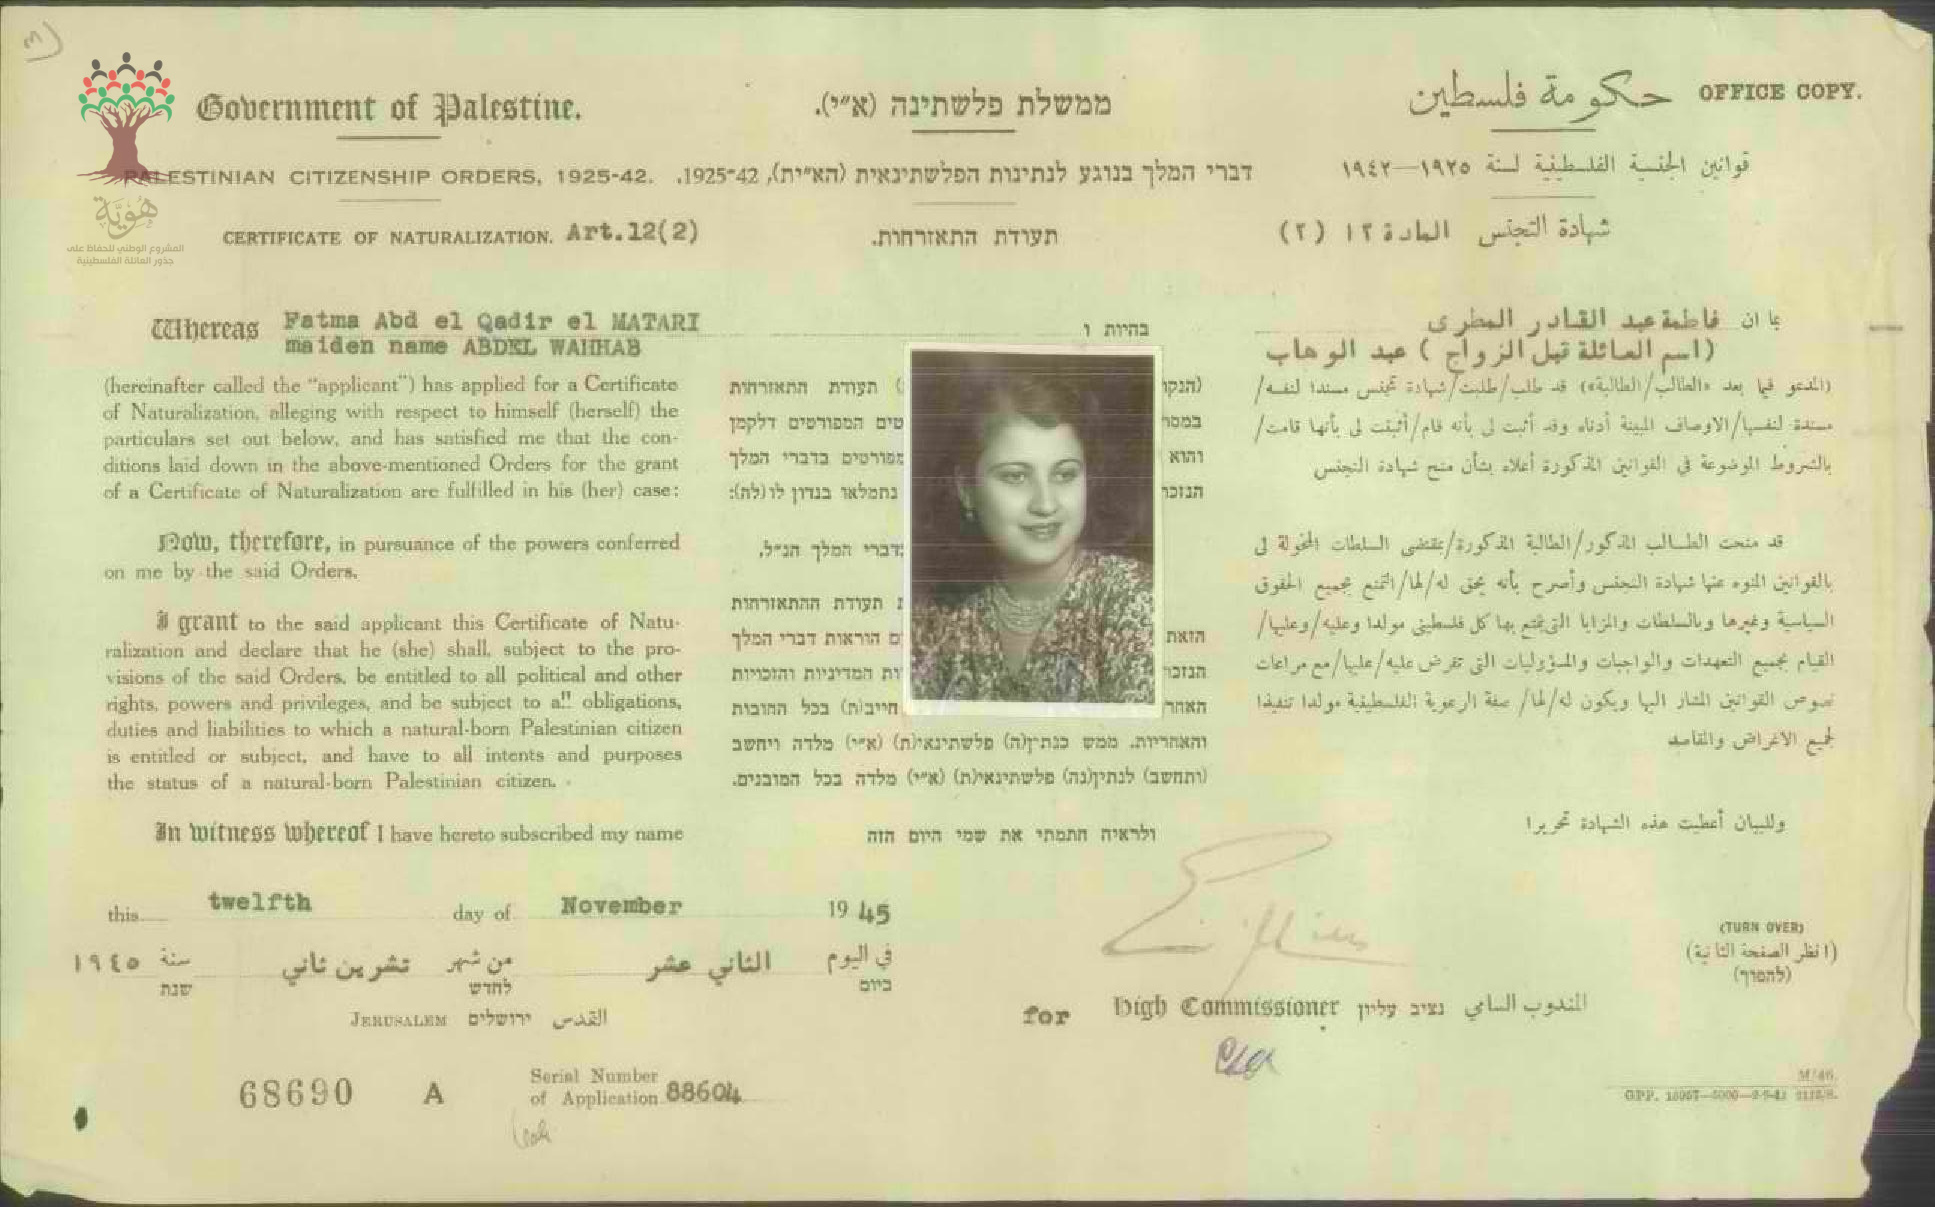 OFFICE COPY.
Government of Palestine.
PALESTINIAN CITIZENSHIP ORDERS, 1925-42.
CERTIFICATE OF NATURALIZATION. Art.12(2)
هُوِيَّة
المشروع الوطني للحفاظ على
جذور العائلة الفلسطينية
Whereas Fatma Abd el Qadir el MATARI
maiden name ABDEL WAHHAB
(hereinafter called the "applicant") has applied for a Certificate
of Naturalization, alleging with respect to himself (herself) the
particulars set out below, and has satisfied me that the con-
ditions laid down in the above-mentioned Orders for the grant
of a Certificate of Naturalization are fulfilled in his (her) case:
Now, therefore, in pursuance of the powers conferred
on me by the said Orders.
I grant to the said applicant this Certificate of Natu-
ralization and declare that he (she) shall, subject to the pro-
visions of the said Orders, be entitled to all political and other
rights, powers and privileges, and be subject to all obligations,
duties and liabilities to which a natural-born Palestinian citizen
is entitled or subject, and have to all intents and purposes
the status of a natural-born Palestinian citizen.
In witness whereof I have hereto subscribed my name
ממשלת פלשתינה (א״י).
דברי המלך בנוגע לנתינות הפלשתינאית (הא״ית), 1925-42.
תעודת התאזרחות.
בהיות ו
(הנקר
) תעודת התאזרחות
במסר
טים המפורטים דלקמן
והוא
מפורטים בדברי המלך
הנזכר
נתמלאו בנדון לו(לה):
בדברי המלך הנ״ל,
תעודת ההתאזרחות
הזאת
ם הוראות דברי המלך
הנזכר
יות המדיניות והזכויות
האחר
חייב(ת) בכל החובות
והאחריות, ממש כנתין(ה) פלשתינאי(ת) (א״י) מלדה ויחשב
(ותחשב) לנתין(נה) פלשתינאי(ת) (א״י) מלדה בכל המובנים.
ולראיה חתמתי את שמי היום הזה
حكومة فلسطين
قوانين الجنسية الفلسطينية لسنة ١٩٢٥—١٩٤٢
شهادة التجنس المادة ١٢ (٢)
بما ان فاطمة عبد القادر المطرى
(اسم العائلة قبل الزواج ) عبد الوهاب
(المدعو فيما بعد «الطالب/الطالبة») قد طلب/طلبت/شهادة تجنس مسندا لنفسه/
مسندة لنفسها/الاوصاف المبينة أدناه وقد أثبت لى بأنه قام/أثبتت لى بأنها قامت/
بالشروط الموضوعة في القوانين المذكورة أعلاه بشأن منح شهادة التجنس
قد منحت الطالب المذكور/الطالبة المذكورة/بمقتضى السلطات المخولة لى
بالقوانين المنوه عنها شهادة التجنس وأصرح بأنه يحق له/لها/التمتع بجميع الحقوق
السياسية وغيرها وبالسلطات والمزايا التي يتمتع بها كل فلسطينى مولدا وعليه/وعليها/
القيام بجميع التعهدات والواجبات والمسؤوليات التى تفرض عليه/عليها/مع مراعات
نصوص القوانين المشار اليها ويكون له/لها/ صفة الرعوية الفلسطينية مولدا تنفيذا
لجميع الاغراض والمقاصد
وللبيان أعطيت هذه الشهادة تحريرا
this twelfth day of November 1945
في اليوم الثاني عشر من شهر تشرين ثاني سنة ١٩٤٥
ביום לחדש שנת
JERUSALEM ירושלים القدس
(TURN OVER)
(انظر الصفحة الثانية)
(להפוך)
for High Commissioner נציב עליון المندوب السامي
68690 A
Serial Number
of Application 88604
M/46.